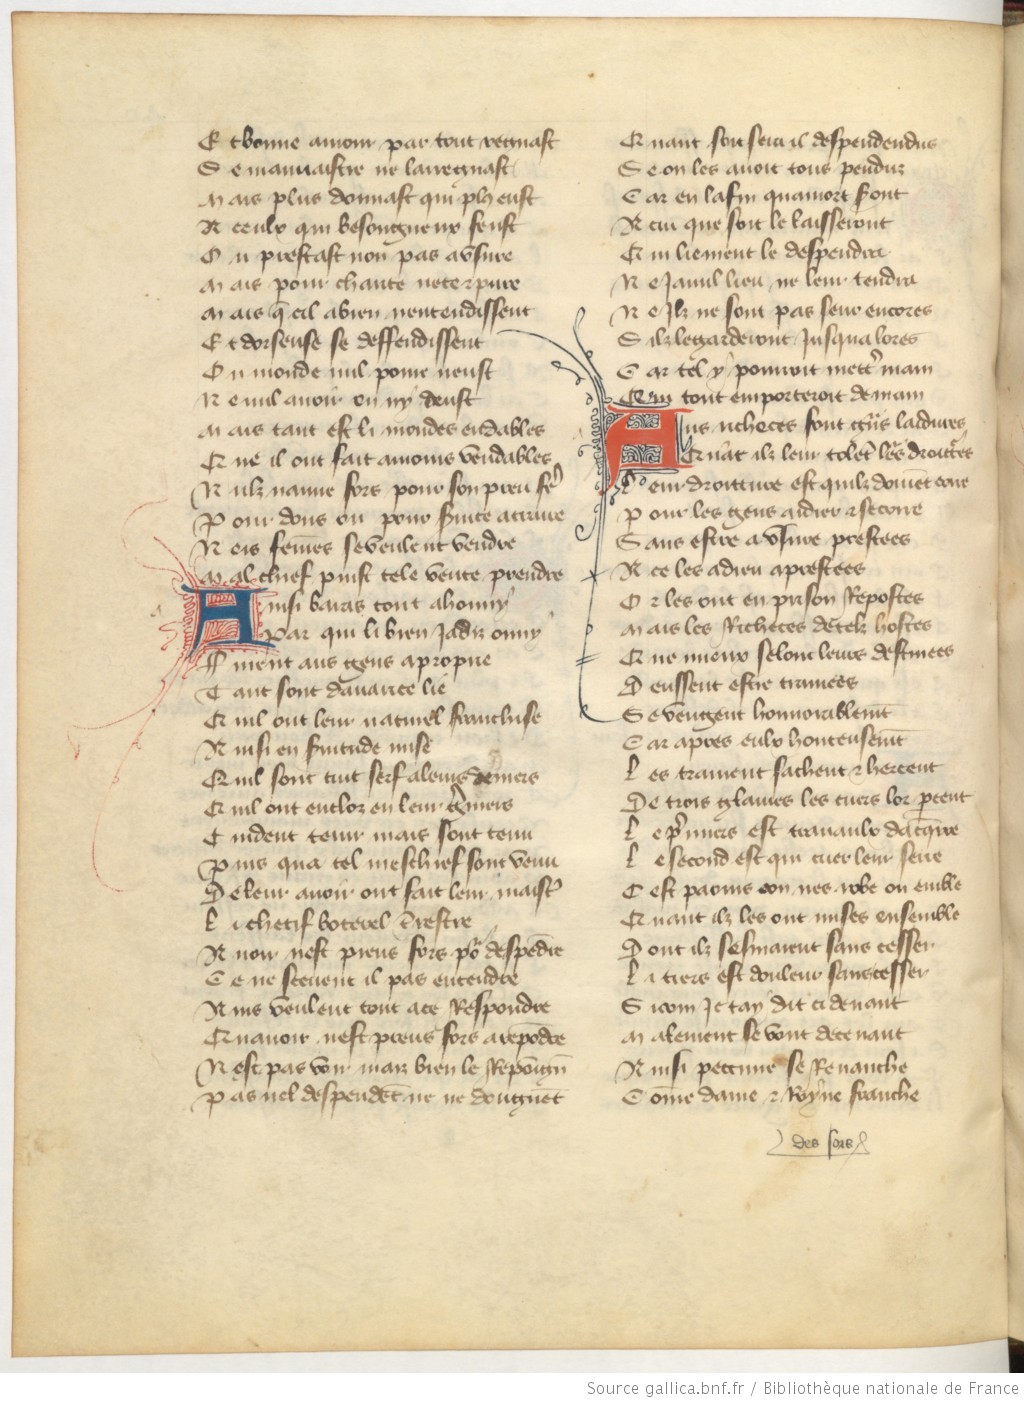 Et bonne amour par tout regnast
Se mauuaistie ne lairegnast
Mais plus donnast qui plus eust
A ceulx qui besongneux feust
Ou prestast non pas a vsure
Mais pour charite nete & pure
Mais q̄ cil a bien nentendissent
Et doiseuse se deffendissent
Ou monde nul poure neust
Ne nul auoir on ny deust
Mais tant est li mondes endables
Quil ont fait amours vendables
Nulz naime fors pour son preu fẽ
Pour dons ou pour seruice attraire
Neis femes se veulent vendre
Mal chief puist tele vente prendre
Ainsi baras tout a honny
Par qui li bien jadiz onny
Furent aus gens aproprie
Tant sont dauarice lie
Quil ont leur naturel franchise
Ainsi en seruitude mise
Quil sont tuit serf a leurs deniers
Quil ont enclox en leur greniers
Cuident tenir mais sont tenu
Puis qua tel meschief sont venu
De leur auoir ont fait leur maistr
Li chetif boterel terrestre
Auoir nest preus fors po2 despēdre
Ce ne sceuent il pas entendre
Ains veulent tout a ce Respondre
Quauoir nest preus fors a repōdre
Nest pas voir maiz bien le Repoingnt
Pas nel despendēt ne ne dongnēt
Quant son seur il despendendus
Se on les auoit tous penduz
Car en la fin quamort sont
A cui que soit le laisseront
Qui liement le despendra
Ne ja nul lieu ne leur tendra
Ne Ilz ne sont pas seur encores
Silz le garderont Jusqua lores
Car tel y pourroit mettr main
Qui tout emporteroit demain
Aus richeces sont grās laidures
Quāt ilz leur tolēt leurs droittes
Leur droitture est quilz doiuēt coure
Pour les gens aidier & secoure
Sans estre a vsure prestees
A ce les a dieu aprestees
Or les ont en prison Repostes
Mais les Richeces de telz hostes
Qui mieux selonc leurs destinees
Deussent estre trainees
Se vengent honnorablemt
Car apres eulx honteusemt
Les trainent sachent & hercent
De trois glaiues les cuers lor percent
Le pmiers est trauaulx dacqre
Le second est qui cuer leur serre
Cest paours con nes robe ou emble
Quant ilz les ont mises ensemble
Dont ilz sesmaient sans cesser
La tiers est douleur sans cesser
Si com Je tay dit ci deuant
Malement se vont deceuant
Ainsi pecune se Reuanche
Cōme dame & Royne franche
des sers
Source gallica.bnf.fr / Bibliothèque nationale de France